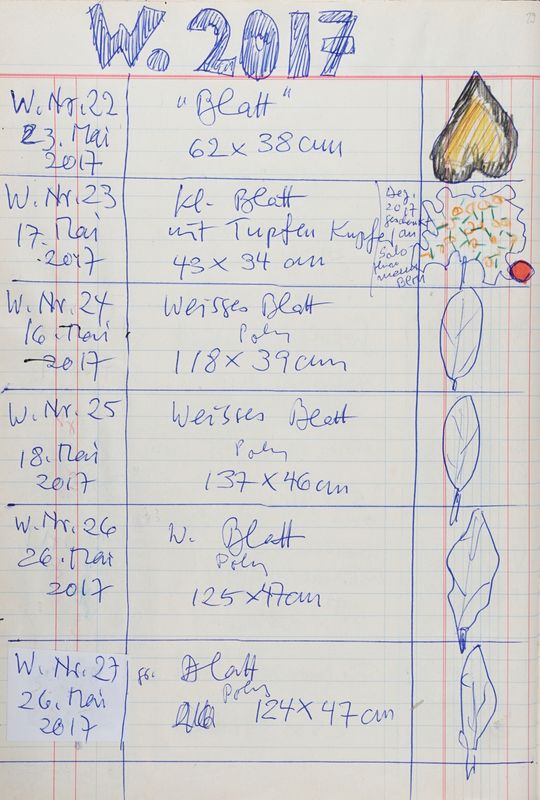 W. 2017
29
W. Nr. 22
23. Mai
2017
"Blatt"
62 x 38 cm
W. Nr. 23
17. Mai
2017
kl. Blatt
mit Tupfen Kupfer
43 x 34 cm
Dez.
2017
geschenkt
an
W. Nr. 24
16. Mai
2017
Weisses Blatt
Poly
118 x 39 cm
W. Nr. 25
18. Mai
2017
Weisses Blatt
Poly
137 x 46 cm
W. Nr. 26
26. Mai
2017
W. Blatt
Poly
125 x 47 cm
W. Nr. 27
26. Mai
2017
gr. Blatt
Poly
124 x 47 cm